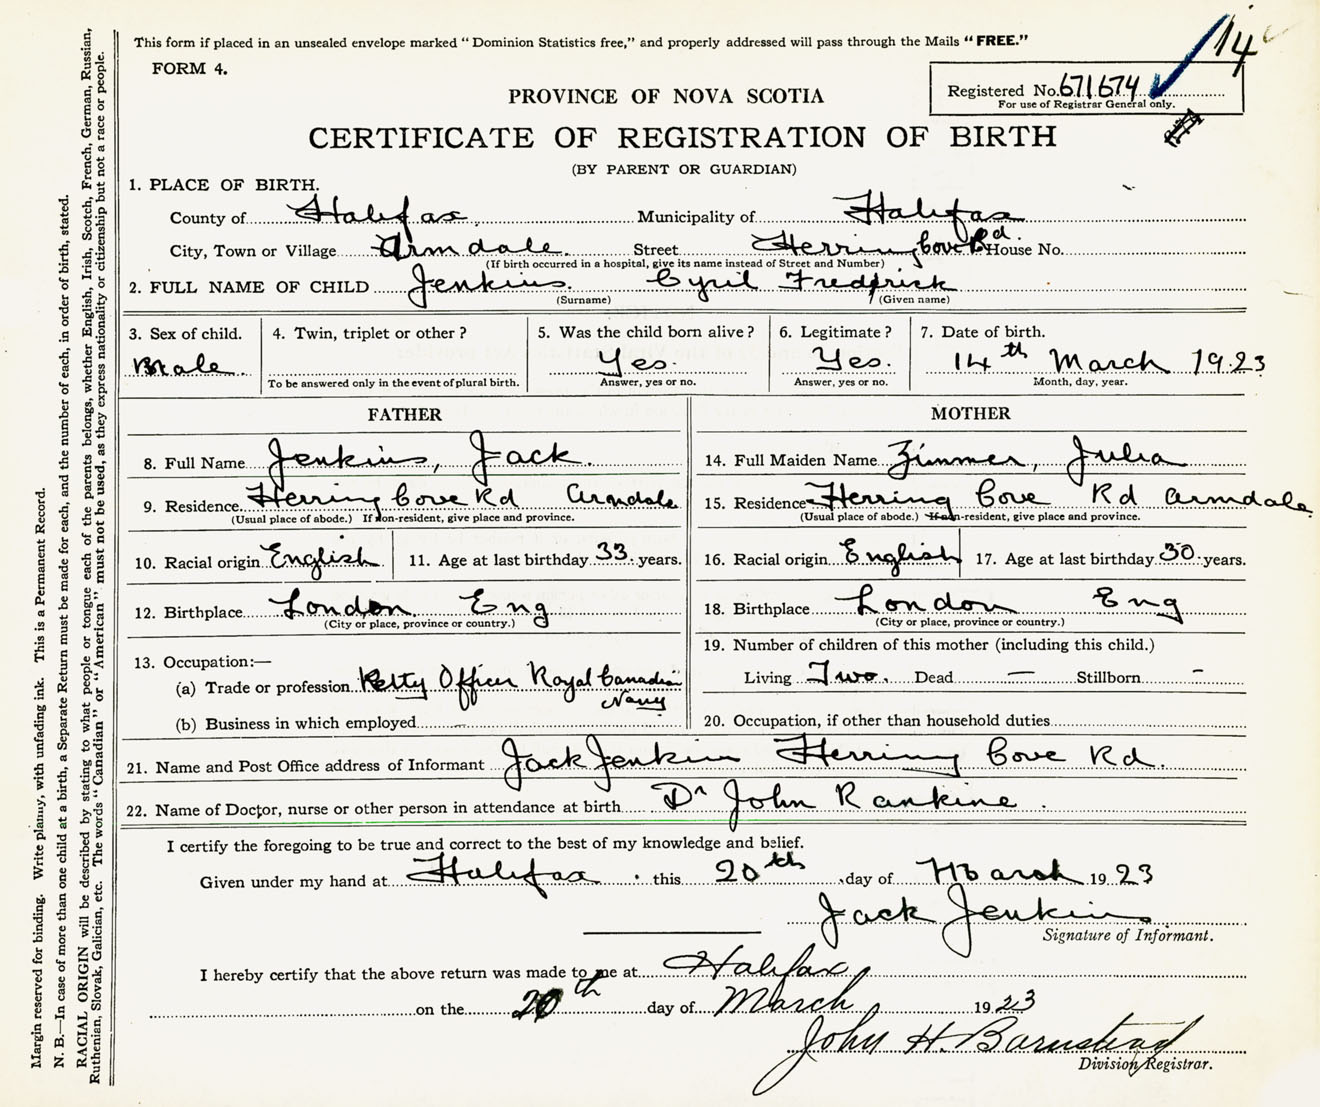 This form if placed in an unsealed envelope marked "Dominion Statistics free," and properly addressed will pass through the Mails "FREE."
14
FORM 4.
Registered No. 671674
For use of Registrar General only.
PROVINCE OF NOVA SCOTIA
CERTIFICATE OF REGISTRATION OF BIRTH
(BY PARENT OR GUARDIAN)
1. PLACE OF BIRTH.
County of Halifax Municipality of Halifax
City, Town or Village Armdale Street Herring Cove Rd. House No.
(If birth occurred in a hospital, give its name instead of Street and Number)
2. FULL NAME OF CHILD Jenkins. Cyril Fredrick
(Surname) (Given name)
3. Sex of child. 4. Twin, triplet or other? 5. Was the child born alive? 6. Legitimate? 7. Date of birth.
Male Yes. Yes. 14th March 1923
To be answered only in the event of plural birth. Answer, yes or no. Answer, yes or no. Month, day, year.
FATHER
8. Full Name Jenkins, Jack.
9. Residence Herring Cove Rd Armdale
(Usual place of abode.) If non-resident, give place and province.
10. Racial origin English 11. Age at last birthday 33 years.
12. Birthplace London Eng
(City or place, province or country.)
13. Occupation:—
(a) Trade or profession Petty Officer Royal Canadian
Navy
(b) Business in which employed —
MOTHER
14. Full Maiden Name Zimmer, Julia
15. Residence Herring Cove Rd Armdale
(Usual place of abode.) If non-resident, give place and province.
16. Racial origin English 17. Age at last birthday 30 years.
18. Birthplace London Eng
(City or place, province or country.)
19. Number of children of this mother (including this child.)
Living Two. Dead — Stillborn -
20. Occupation, if other than household duties
21. Name and Post Office address of Informant Jack Jenkins Herring Cove Rd.
22. Name of Doctor, nurse or other person in attendance at birth Dr John Rankine.
I certify the foregoing to be true and correct to the best of my knowledge and belief.
Given under my hand at Halifax this 20th day of March 1923
Jack Jenkins
Signature of Informant.
I hereby certify that the above return was made to me at Halifax,
on the 20th day of March 1923
John H. Barnstead
Division Registrar.
Margin reserved for binding. Write plainly, with unfading ink. This is a Permanent Record.
N. B.—In case of more than one child at a birth, a Separate Return must be made for each, and the number of each, in order of birth, stated.
RACIAL ORIGIN will be described by stating to what people or tongue each of the parents belongs, whether English, Irish, Scotch, French, German, Russian,
Ruthenian, Slovak, Galician, etc. The words "Canadian" or "American" must not be used, as they express nationality or citizenship but not a race or people.